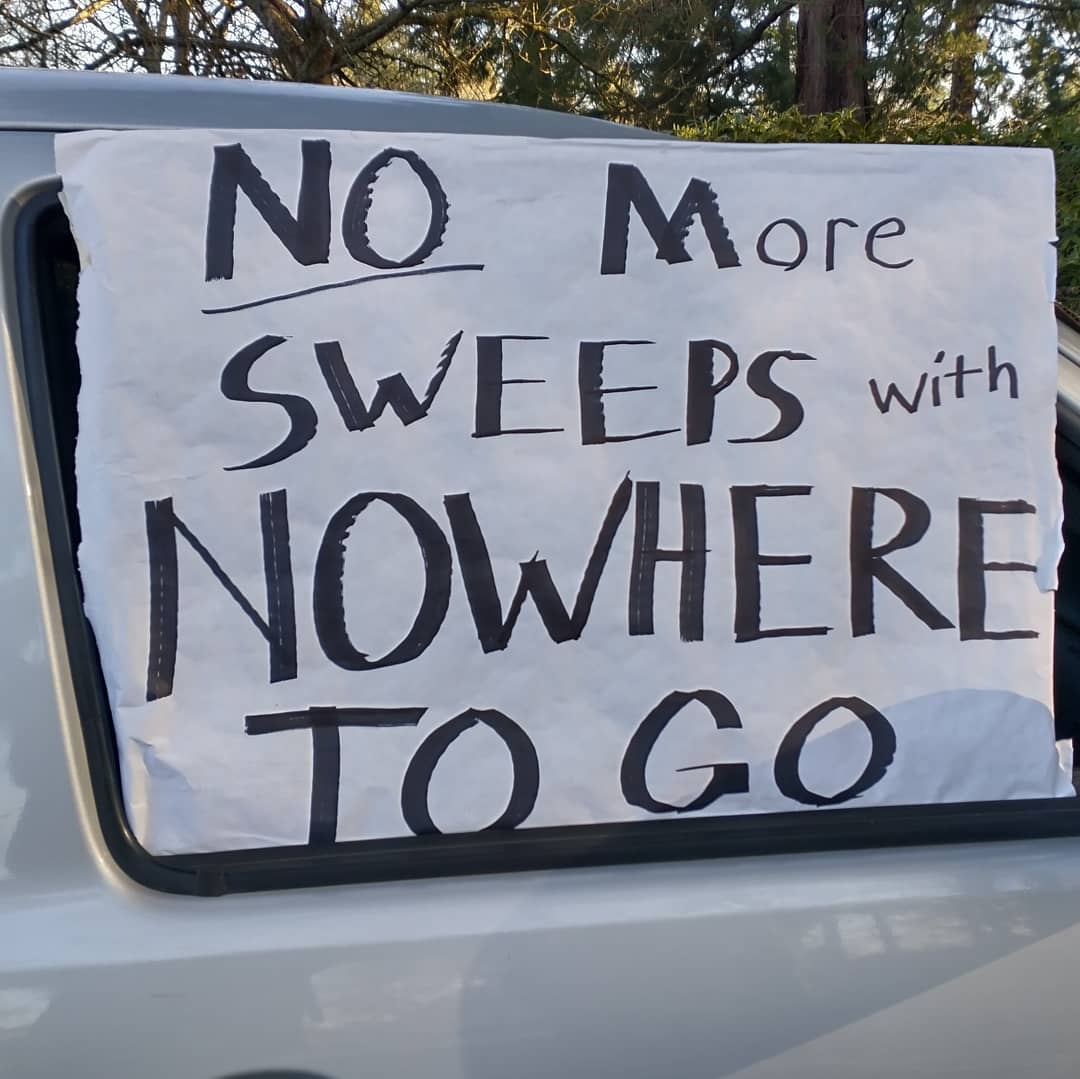 NO More
SWEEPS with
NOWHERE
TO GO